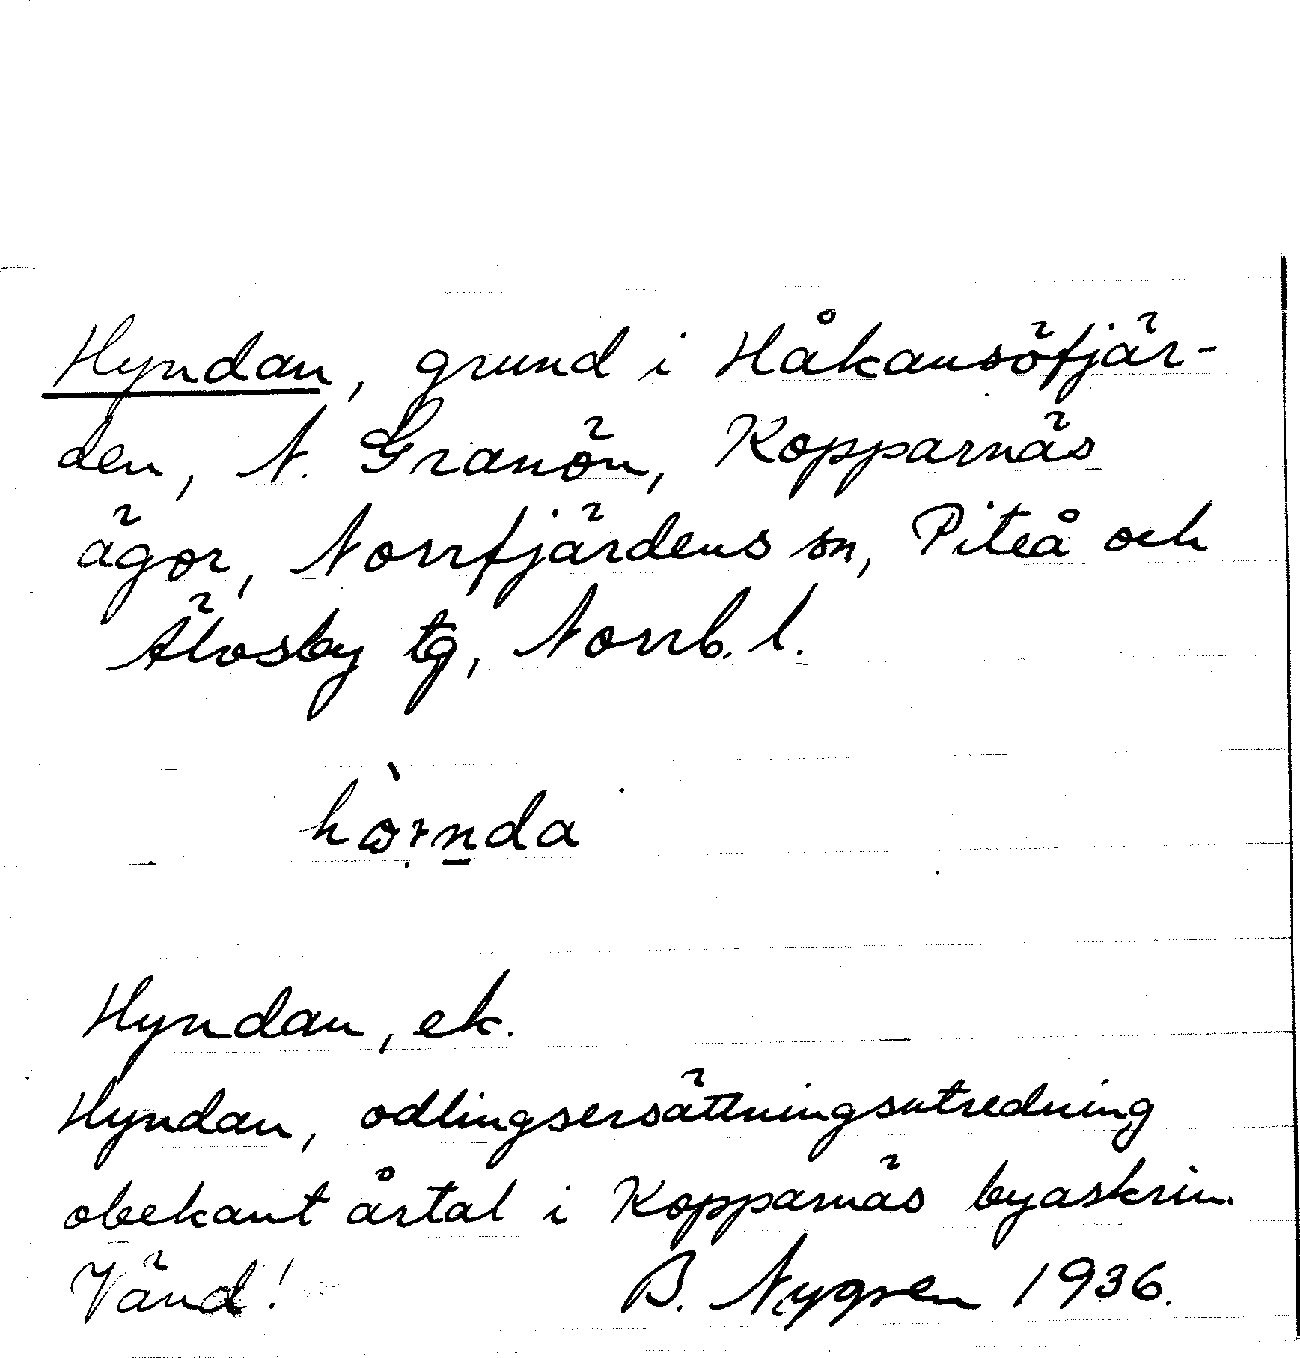 Hyndan, grund i Håkansöfjär-
den, N. Granön, Kopparnäs
ägor, Norrfjärdens sn, Piteå och
Älvsby tg, Norrb. l.
Hyndan, ek.
Hyndan, odlingsersättningsutredning
obekant årtal i Kopparnäs byaskrin.
Vänd! B. Nygren 1936.